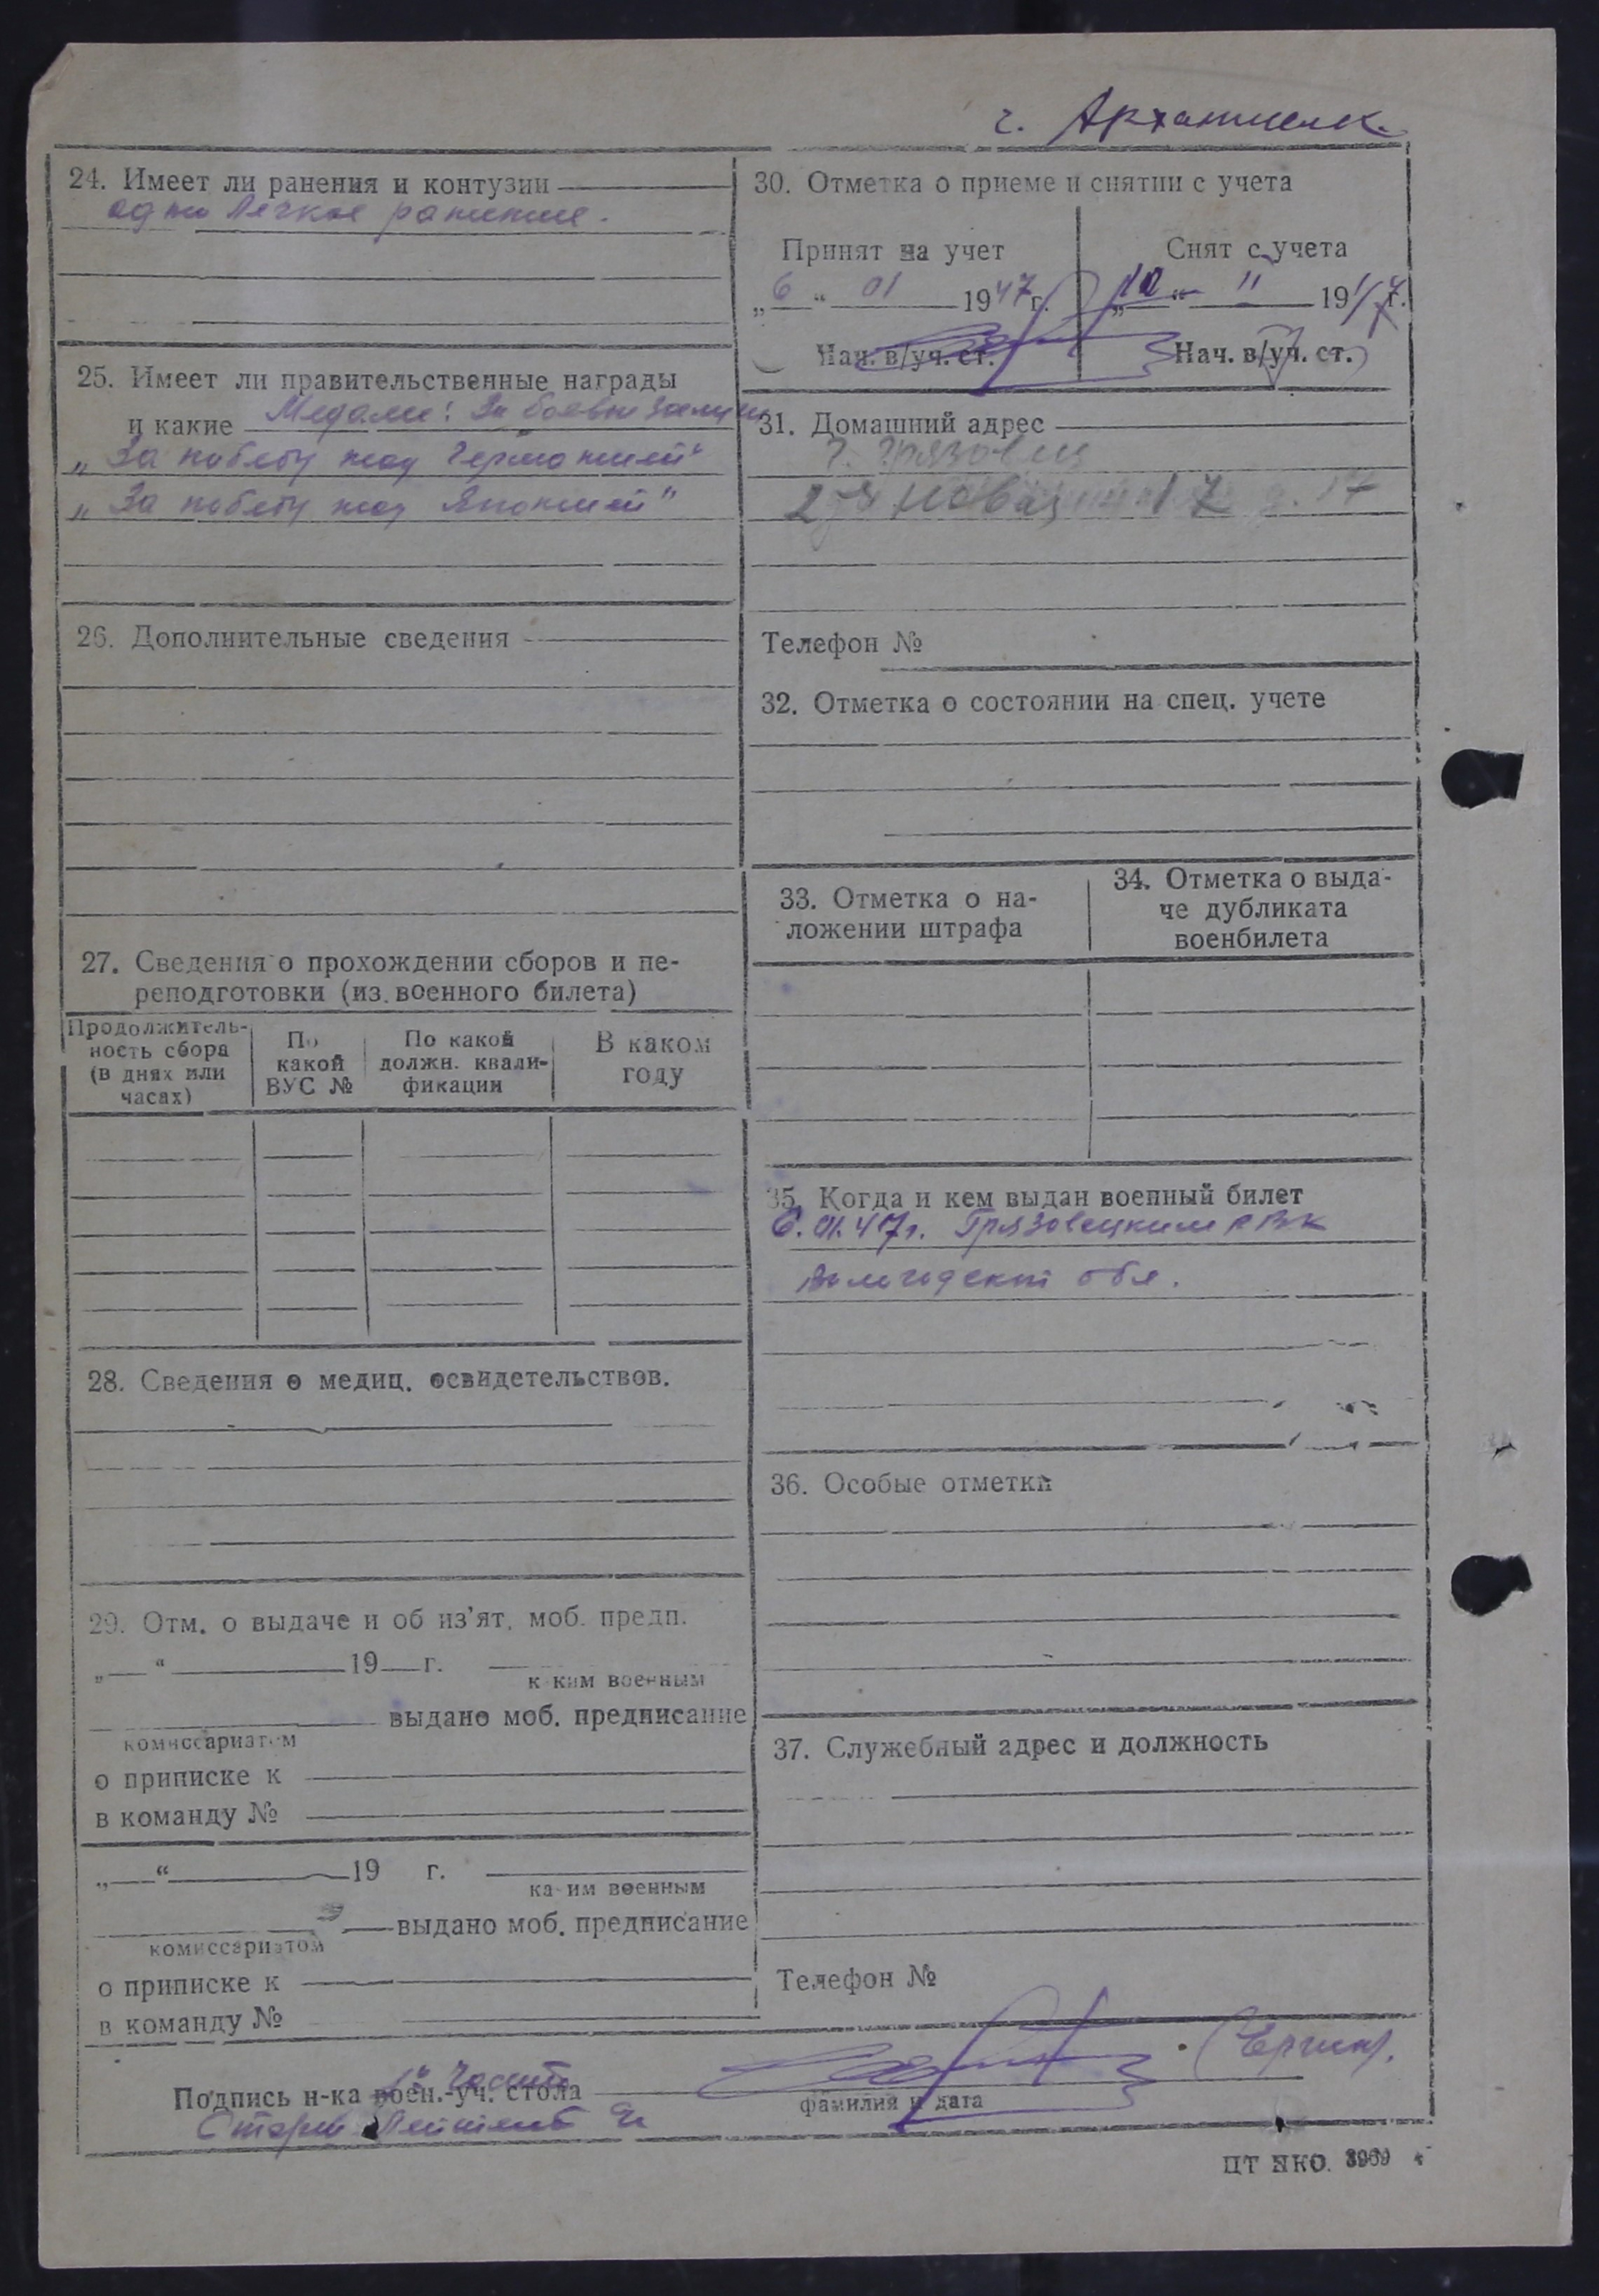 г. Архангельск.
24. Имеет ли ранения и контузии
одно легкое ранение.
25. Имеет ли правительственные награды
и какие Медали: За боевые заслуги
„За победу над Германией"
„За победу над Японией"
26. Дополнительные сведения
27. Сведения о прохождении сборов и пе-
реподготовки (из военного билета)
Продолжитель-
ность сбора
(в днях или
часах)
По
какой
ВУС №
По какой
должн. квали-
фикации
В каком
году
28. Сведения о медиц. освидетельствов.
29. Отм. о выдаче и об из'ят. моб. предп.
„ “ 19 г.
каким военным
выдано моб. предписание
комиссариатом
о приписке к
в команду №
„ “ 19 г.
каким военным
выдано моб. предписание
комиссариатом
о приписке к
в команду №
30. Отметка о приеме и снятии с учета
Принят на учет
„6“ 01 1947г.
Нач. в/уч. ст.
Снят с учета
„10“ 11 1947г.
Нач. в/уч. ст.
31. Домашний адрес
г. Грязовец
2-я Новая 17 д. 17
Телефон №
32. Отметка о состоянии на спец. учете
33. Отметка о на-
ложении штрафа
34. Отметка о выда-
че дубликата
военбилета
35. Когда и кем выдан военный билет
6.01.47г. Грязовецким РВК
Вологодской обл.
36. Особые отметки
37. Служебный адрес и должность
Телефон №
Подпись н-ка воен.-уч. стола
части
фамилия и дата
Старш. Лейтенант
ЦТ НКО. 3969